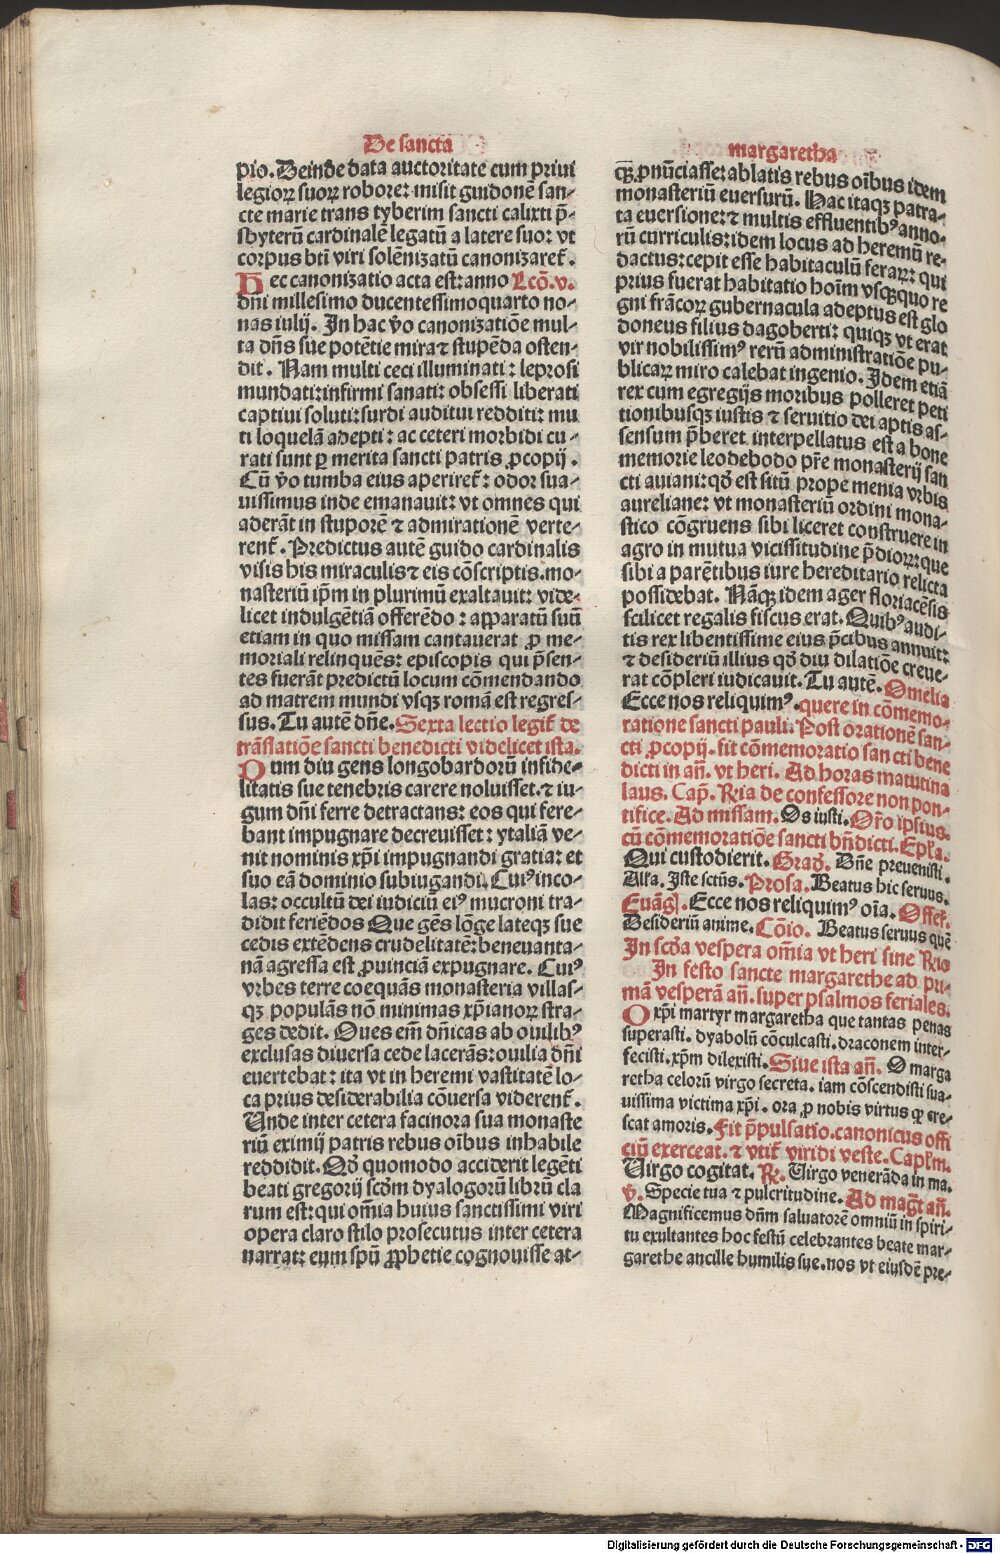 De sancta
pio. Deinde data auctoritate cum priui
legioꝝ suoꝝ robore: misit guidonē san-
cte marie trans tyberim sancti calixti p̄-
sbyterū cardinalē legatū a latere suo: vt
corpus bti̅ viri solēnizatū canonizaret̄.
Hec canonizatio acta est: anno Lcō. v.
dn̄i millesimo ducentessimoquarto no-
nas iulij. In hac v̄o canonizatiōe mul-
ta dn̄s sue potētie mira ⁊ stupēda osten-
dit. Nam multi ceci illuminati: leprosi
mundati: infirmi sanati: obsessi liberati
captiui soluti: surdi auditui redditi: mu
ti loquelā adepti: ac ceteri morbidi cu-
rati sunt ꝑ merita sancti patris ꝓcopij.
Cū v̄o tumba eius aperiret̄: odor sua-
uissimus inde emanauit: vt omnes qui
aderāt in stuporē ⁊ admirationē verte-
rent̄. Predictus autē guido cardinalis
visis his miraculis ⁊ eis cōscriptis. mo-
nasteriū ip̄m in plurimū exaltauit: vide-
licet indulgētiā offerēdo: apparatū suū
etiam in quo missam cantauerat ꝓ me-
moriali relinquēs: episcopis qui p̄sen-
tes fuerāt predictū locum cōmendando
ad matrem mundi vsqꝫ romā est regres-
sus. Tu autē dn̄e. Sexta lectio legit̄ de
trāslatiōe sancti benedicti videlicet ista.
Cum diu gens longobardorū infide-
litatis sue tenebris carere noluisset. ⁊ iu-
gum dn̄i ferre detractans: eos qui fere-
bant impugnare decreuisset: ytaliā ve-
nit nominis xp̄i impugnandi gratia: et
suo eā dominio subiugandi. Cuiꝰ inco-
las: occultū dei iudiciū eiꝰ mucroni tra-
didit feriēdos Que gēs lōge lateqꝫ sue
cedis extēdens crudelitatē: beneuanta-
nā agressa est ꝓuinciā expugnare. Cuiꝰ
vrbes terre coequās monasteria villas-
qꝫ populās nō minimas xp̄ianoꝝ stra-
ges dedit. Oues em̄ dn̄icas ab ouilibꝰ
exclusas diuersa cede lacerās: ouilia dn̄i
euertebat: ita vt in heremi vastitatē lo-
ca prius desiderabilia cōuersa viderent̄.
Unde inter cetera facinora sua monaste
riū eximij patris rebus oībus inhabile
reddidit. Qd̄ quomodo acciderit legēti
beati gregorij scd̄m dyalogorū librū cla
rum est: qui om̄ia huius sanctissimi viri
opera claro stilo prosecutus inter cetera
narrat: eum spū ꝓphetie cognouisse at-
margaretha
qꝫ ꝓnūciasse: ablatis rebus oībus idem
monasteriū euersurū. Hac itaqꝫ patra-
ta euersione: ⁊ multis effluentibꝰ anno-
rū curriculis: idem locus ad heremū re-
dactus: cepit esse habitaculū feraꝝ: qui
prius fuerat habitatio hoīm vsqꝫquo re
gni frācoꝝ gubernacula adeptus est glo
doneus filius dagoberti: quiqꝫ vt erat
vir nobilissimꝰ rerū administratiōe pu-
blicaꝝ miro calebat ingenio. Idem etiā
rex cum egregijs moribus polleret peti
tionibusqꝫ iustis ⁊ seruitio dei aptis as-
sensum p̄beret interpellatus est a bone
memorie leodebodo pr̄e monasterij san
cti auiani: qd̄ est sitū prope menia vrbis
aureliane: vt monasteriū ordini mona-
stico cōgruens sibi liceret construere in
agro in mutua vicissitudine p̄dioꝝ: que
sibi a parētibus iure hereditario relicta
possidebat. Nāqꝫ idem ager floriacēsis
scilicet regalis fiscus erat. Quibꝰ audi-
tis rex libentissime eius p̄cibus annuit:
⁊ desideriū illius qd̄ diu dilatiōe creue-
rat cōpleri iudicauit. Tu autē. Omelia
Ecce nos reliquimꝰ. quere in cōmemo-
ratione sancti pauli. Post orationē san-
cti ꝓcopij. fit cōmemoratio sancti bene
dicti in an̄. vt heri. Ad horas matutina
laus. Cap̄. Ria de confessore non pon-
tifice. Ad missam. Os iusti. Or̄o ipsius.
cū cōmemoratiōe sancti bn̄dicti. Epl̄a.
Qui custodierit. Grad̄. Dn̄e preuenisti.
Alr̄a. Iste sctūs. Prosa. Beatus hic seruus.
Euāgl̄. Ecce nos reliquimꝰ oīa. Offer̄.
Desideriū anime. Cōio. Beatus seruus quē
In scd̄a vespera om̄ia vt heri sine Rio
In festo sancte margarethe ad pri-
mā vesperā an̄. super psalmos feriales.
O xp̄i martyr margaretha que tantas penas
superasti. dyabolū cōculcasti. draconem inter-
fecisti. xp̄m dilexisti. Siue ista an̄. O marga
retha celorū virgo secreta. iam cōscendisti sua-
uissima victima xp̄i. ora ꝓ nobis virtus qꝫ cre-
scat amoris. Fit p̄pulsatio. canonicus offi
ciū exerceat. ⁊ vtit̄ viridi veste. Capl̄m.
Virgo cogitat. R̄. Virgo venerāda in ma.
v̄. Specie tua ⁊ pulcritudine. Ad maḡt an̄.
Magnificemus dn̄m saluatorē omniū in spiri-
tu exultantes hoc festū celebrantes beate mar-
garethe ancille humilis sue. nos vt eiusdē pre-
Digitalisierung gefördert durch die Deutsche Forschungsgemeinschaft - DFG